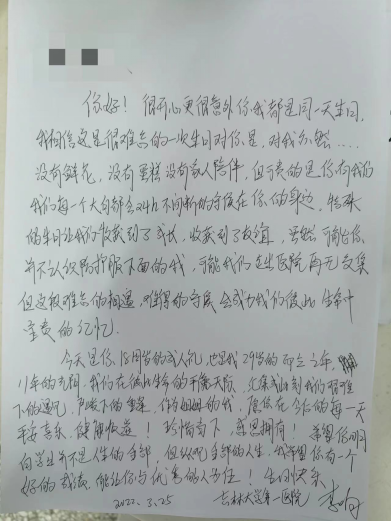 你好！很开心更很意外你我都是同一天生日，
我相信这是很难忘的一次生日对你是，对我亦然....
没有鲜花，没有蛋糕没有家人陪伴，但可贵的是你有我们
我们每一个大白都会24h不间断的守候在你的身边，特殊
的生日让我们收获到了成长，收获到了友谊，虽然可能你
并不认识防护服下面的我，可能我们走出医院再无交集
但这般难忘的相遇，难得的守候会成为我们彼此生命中
宝贵的记忆.
今天是你18周岁的成人礼，也是我29岁的而立之年，
11年的光阴，我们在彼此生命的平衡
下的遇见，作为姐姐的我，愿你在今后的每一天
平安喜乐，珍惜当下，感恩拥有！希望你明
白学业并不是人生的全部，但纵观全部的人生，我希望你有一个
好的成绩，能让你与优秀的人为伍！生日快乐
2022.3.25 吉林大学第一医院 李